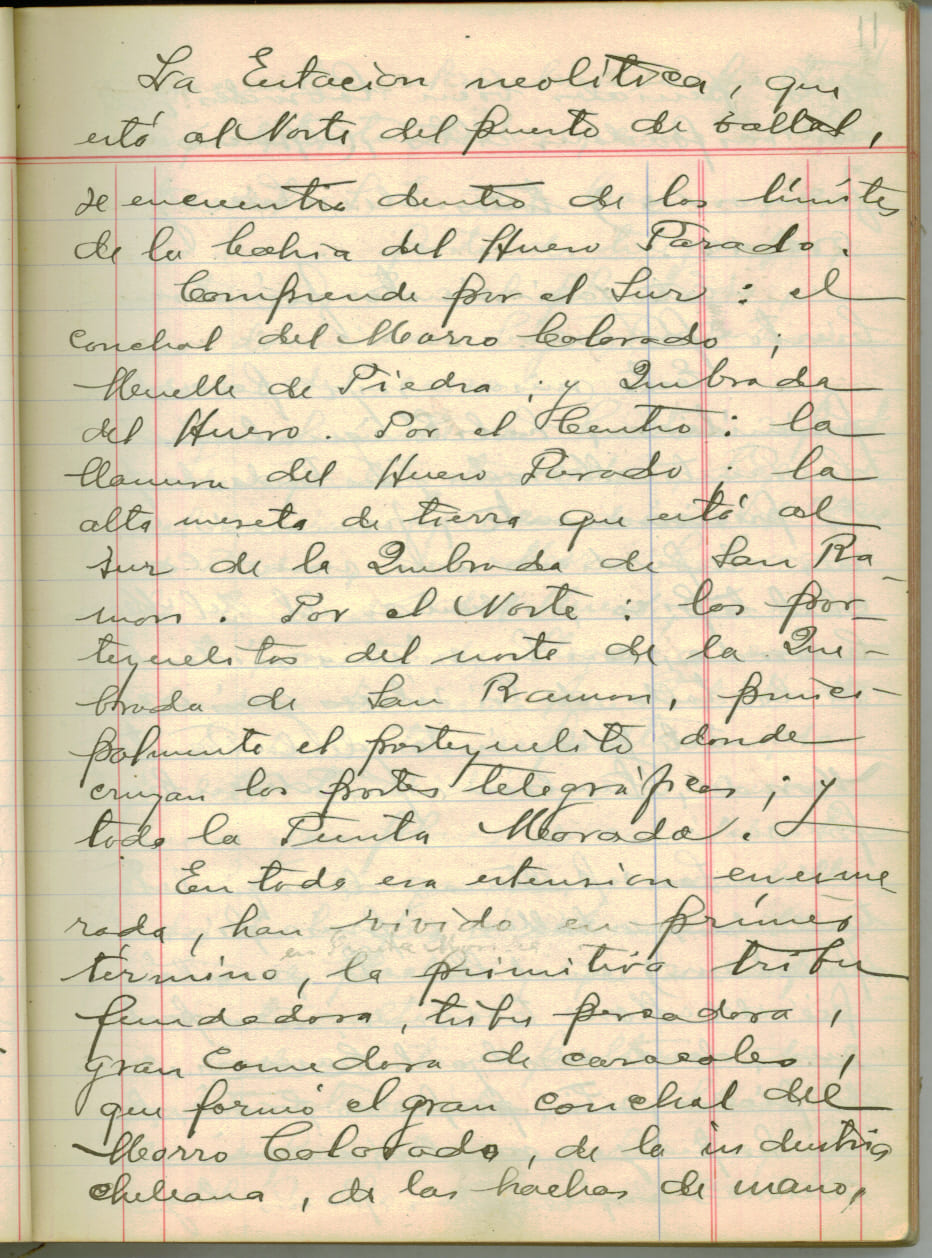 11
La Estacion neolitica, que
está al Norte del puerto de Taltal,
se encuentra dentro de los límites
de la bahia del Hueso Parado.
Comprende por el Sur: el
conchal del Morro Colorado;
Muelle de Piedra; y Quebrada
del Hueso. Por el Centro: la
llanura del Hueso Parado; la
alta meseta de tierra que está al
sur de la Quebrada de San Ra-
mon. Por el Norte: los por-
tezuelitos del norte de la Que-
brada de San Ramon, princi-
palmente el portezuelito donde
cruzan los postes telegráficos; y
toda la Punta Morada. Y
En toda esa estension enume-
rada, han vivido en primer
en Punta Morada
término, la primitiva tribu
fundadora, tribu pescadora,
gran comedora de caracoles,
que formó el gran conchal del
Morro Colorado, de la industria
chelleana, de las hachas de mano,